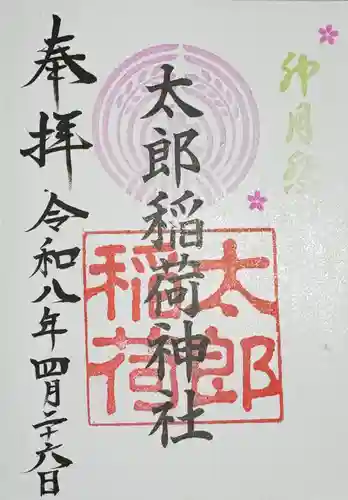 卯月祭
太郎稲荷神社
太郎
稲荷
奉拝
令和八年四月二十六日